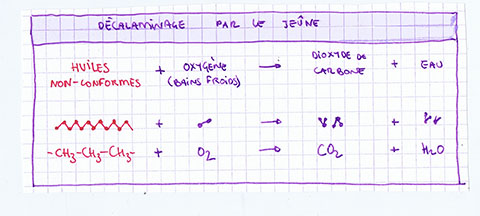 DÉCALAMINAGE PAR LE JEÛNE
HUILES NON-CONFORMES + OXYGÈNE (BAINS FROIDS) → DIOXYDE DE CARBONE + EAU
+ → +
-CH3-CH3-CH3- + O2 → CO2 + H2O